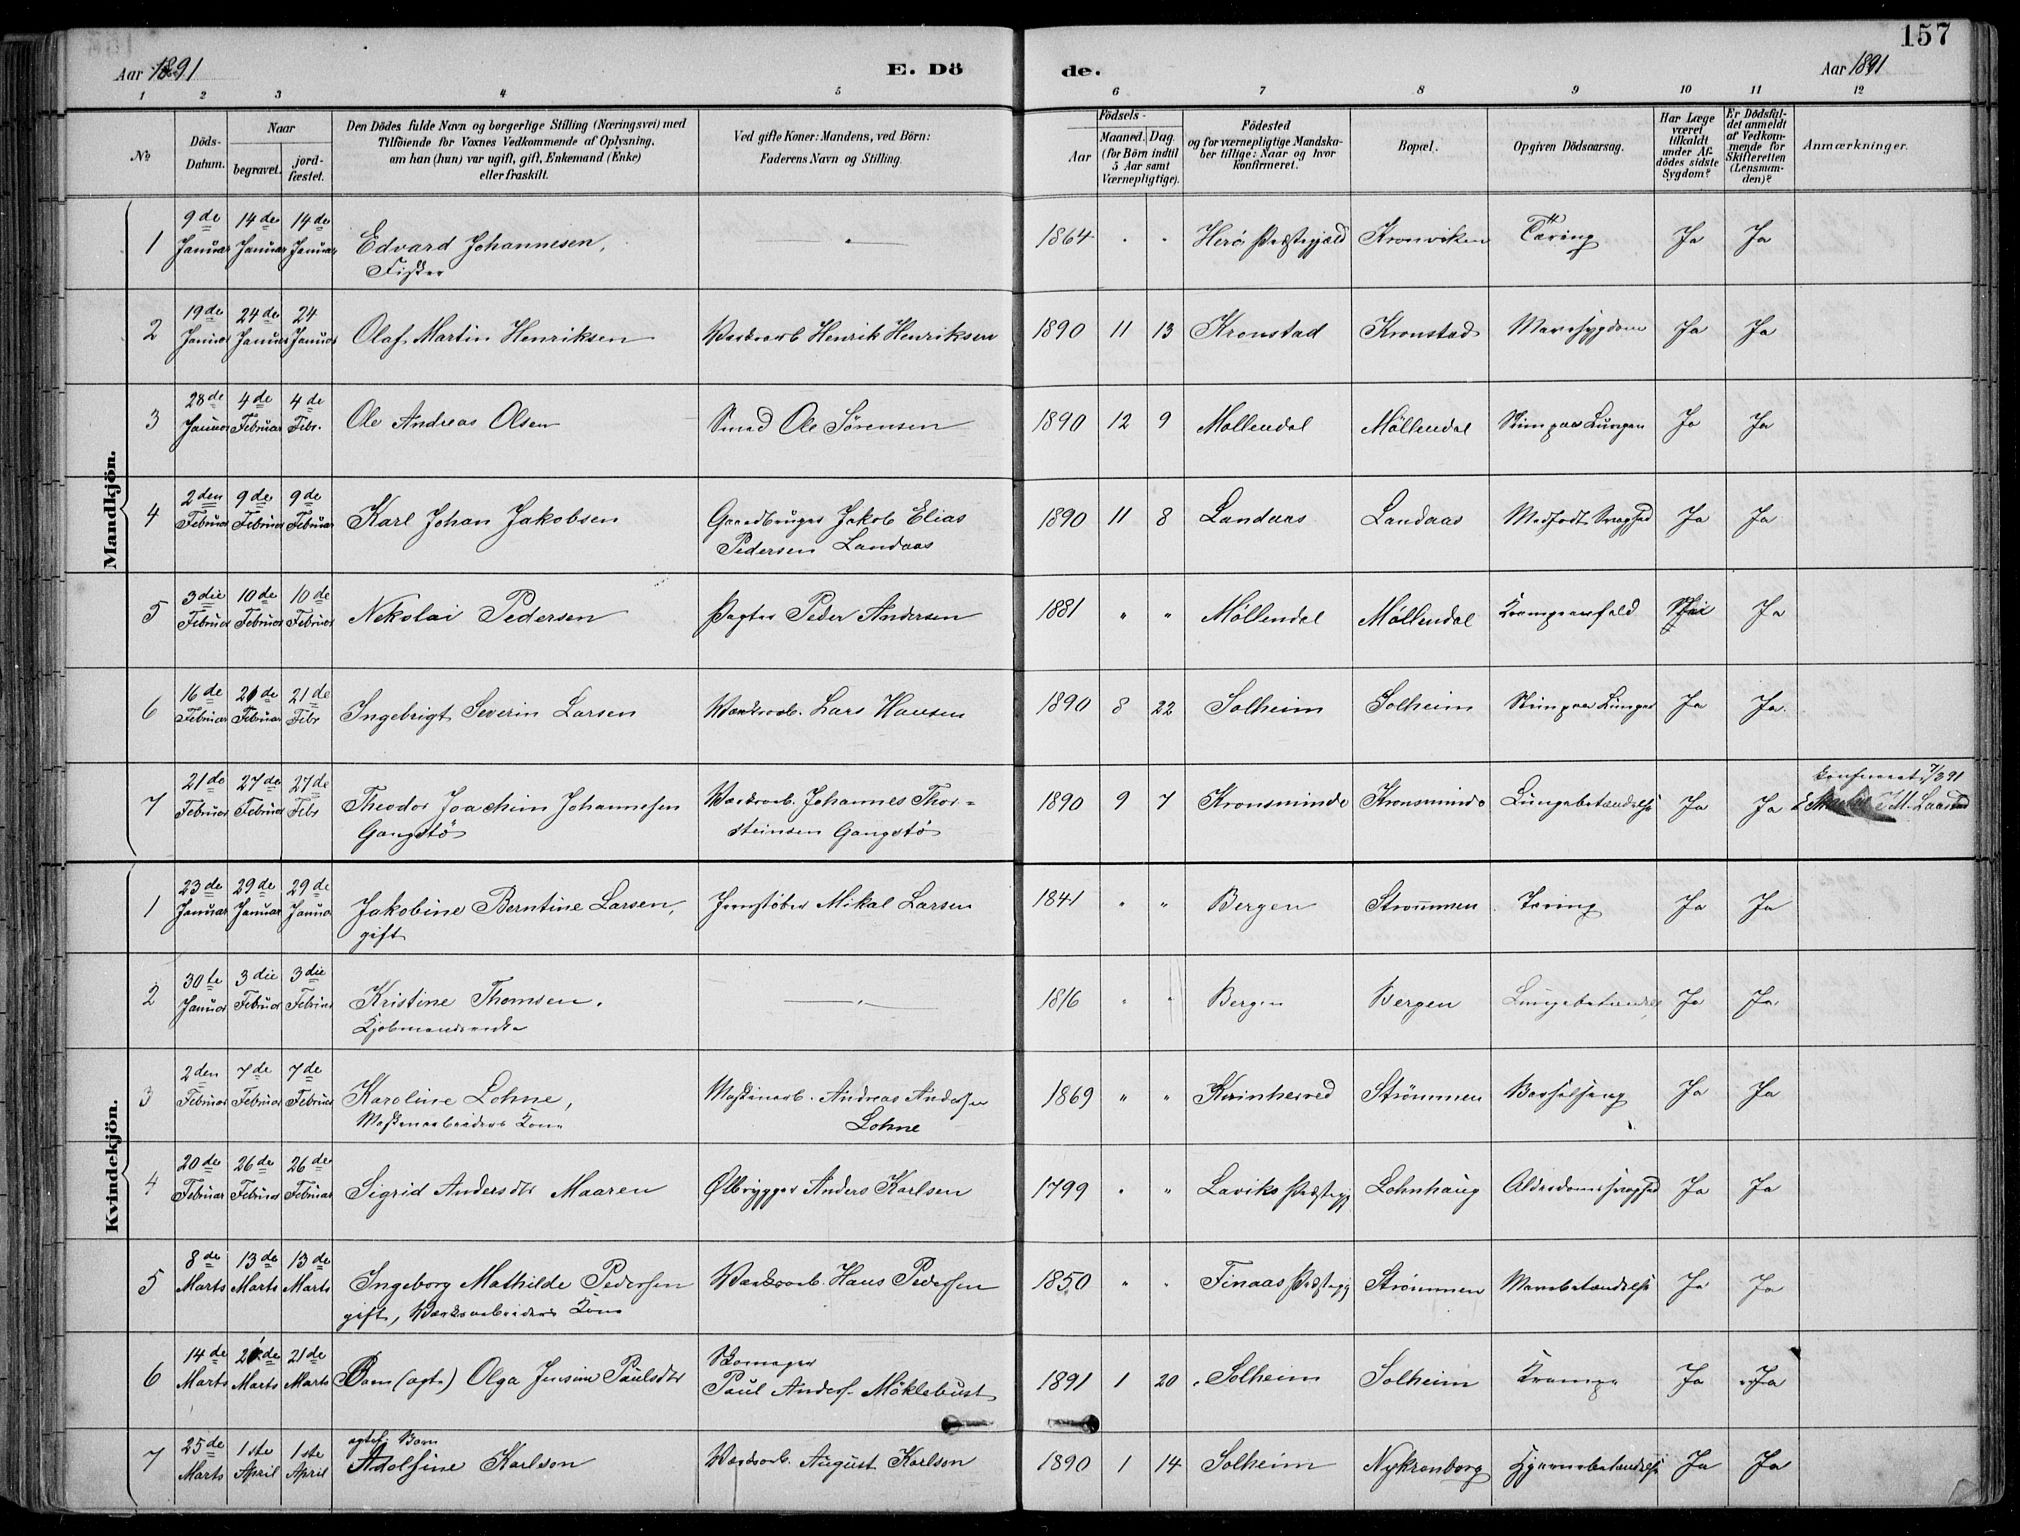 157
Aar 1891
E. Dö
de.
Aar 1891
1 2 3 4 5 6 7 8 9 10 11 12
No
Döds-Datum.
Naar
begravet.
jord-fæstet.
Den Dödes fulde Navn og borgerlige Stilling (Næringsvei) med
Tilföiende for Voxnes Vedkommende af Oplysning.
om han (hun) var ugift, gift, Enkemand (Enke)
eller fraskilt.
Ved gifte Koner: Mandens, ved Börn:
Faderens Navn og Stilling.
Födsels-
Aar
Maaned. Dag.
(for Börn indtil
5 Aar samt
Værnepligtige).
Födested
og for værnepligtige Mandska-
ber tillige: Naar og hvor
konfirmeret.
Bopæl.
Opgiven Dödsaarsag.
Har Læge
været
tilkaldt
under Af-
dödes sidste
Sygdom?
Er Dödsfal-
det anmeldt
af Vedkom-
mende for
Skifteretten
(Lensman-
den)?
Anmærkninger.
Mandkjön.
1 9de Januar 14de Januar 14de Januar Edvard Johannesen, " 1864 " " Herö Præstegjæld Kronviken Tæring Ja Ja
Fisker
2 19de Januar 24de Januar 24 Januar Olaf Martin Henriksen Værksarb Henrik Henriksen 1890 11 13 Kronstad Kronstad Mavesygdom Ja Ja
3 28de Januar 4de Februar 4de Febr. Ole Andreas Olsen Smed Ole Sørensen 1890 12 9 Møllendal Møllendal Slim paa Lungen Ja Ja
4 2den Februar 9de Februar 9de Februar Karl Johan Jakobsen Gaardbruger Jakob Elias 1890 11 8 Landaas Landaas Medfødt Svaghed Ja Ja
Pedersen Landaas
5 3die Februar 10de Februar 10de Februar Nikolai Pedersen Pagter Peder Andersen 1881 " " Møllendal Møllendal Krampeanfald Nei Ja
6 16de Februar 21de Februar 21de Febr Ingebrigt Severin Larsen Værksarb. Lars Hansen 1890 8 22 Solheim Solheim Slim paa Lunger Ja Ja.
7 21de Februar 27de Februar 27de Febr Theodor Joachim Johannesen Værksarb. Johannes Thor= 1890 9 7 Kronsminde Kronsminde Lungebetændelse Ja Ja
Gangstø steinsen Gangstø
Konfereret 7/3 91
M. Laastad
Kvindekjön.
1 23de Januar 29de Januar 29de Januar Jakobine Berntine Larsen, Jernstøber Mikal Larsen 1841 " " Bergen Strømmen Tæring Ja Ja
gift
2 30te Januar 3die Februar 3die Februar Kristine Thomsen. " 1816 " " Bergen Bergen Lungebetændelse Ja Ja.
Kjøbmandsenke
3 2den Februar 7de Februar 7de Februar Karoline Lohne, Maskinarb. Andreas Andersen 1869 " " Kvinherred Strømmen Barselseng Ja Ja
Maskinarbeiders Kone Lohne
4 20de Februar 26de Februar 26de Februar Sigrid Andersdtr Maaren Ølbrygger Anders Karlsen 1799 " " Laviks Præstegj Lohnhaug Alderdomssvaghed Ja Ja
5 8de Marts 13de Marts 13de Marts Ingeborg Mathilde Pedersen Værksarb. Hans Pedersen 1850 " " Finaas Præstegj Strømmen Mavebetændelse Ja Ja
gift, Værksarbeiders Kone
6 14de Marts 21de Marts 21de Marts Barn (ægte) Olga Jensine Paulsdtr Skomager 1891 1 20 Solheim Solheim Krampe Ja Ja
Paul Anders. Møklebust
7 25de Marts 1ste April 1ste April ægtef. Barn
Adolfine Karlson Værksarb. August Karlson 1890 1 14 Solheim Nykronborg Hjernebetændelse Ja Ja